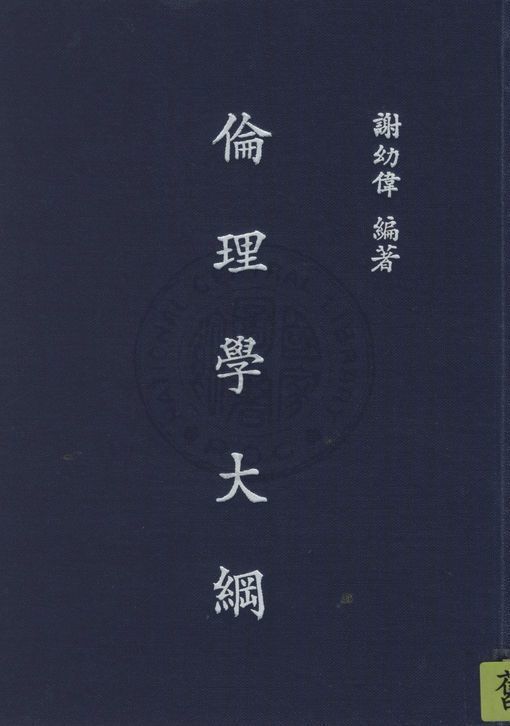 謝幼偉 編著
倫理學大綱
NATIONAL CENTRAL LIBRARY
R.O.C.